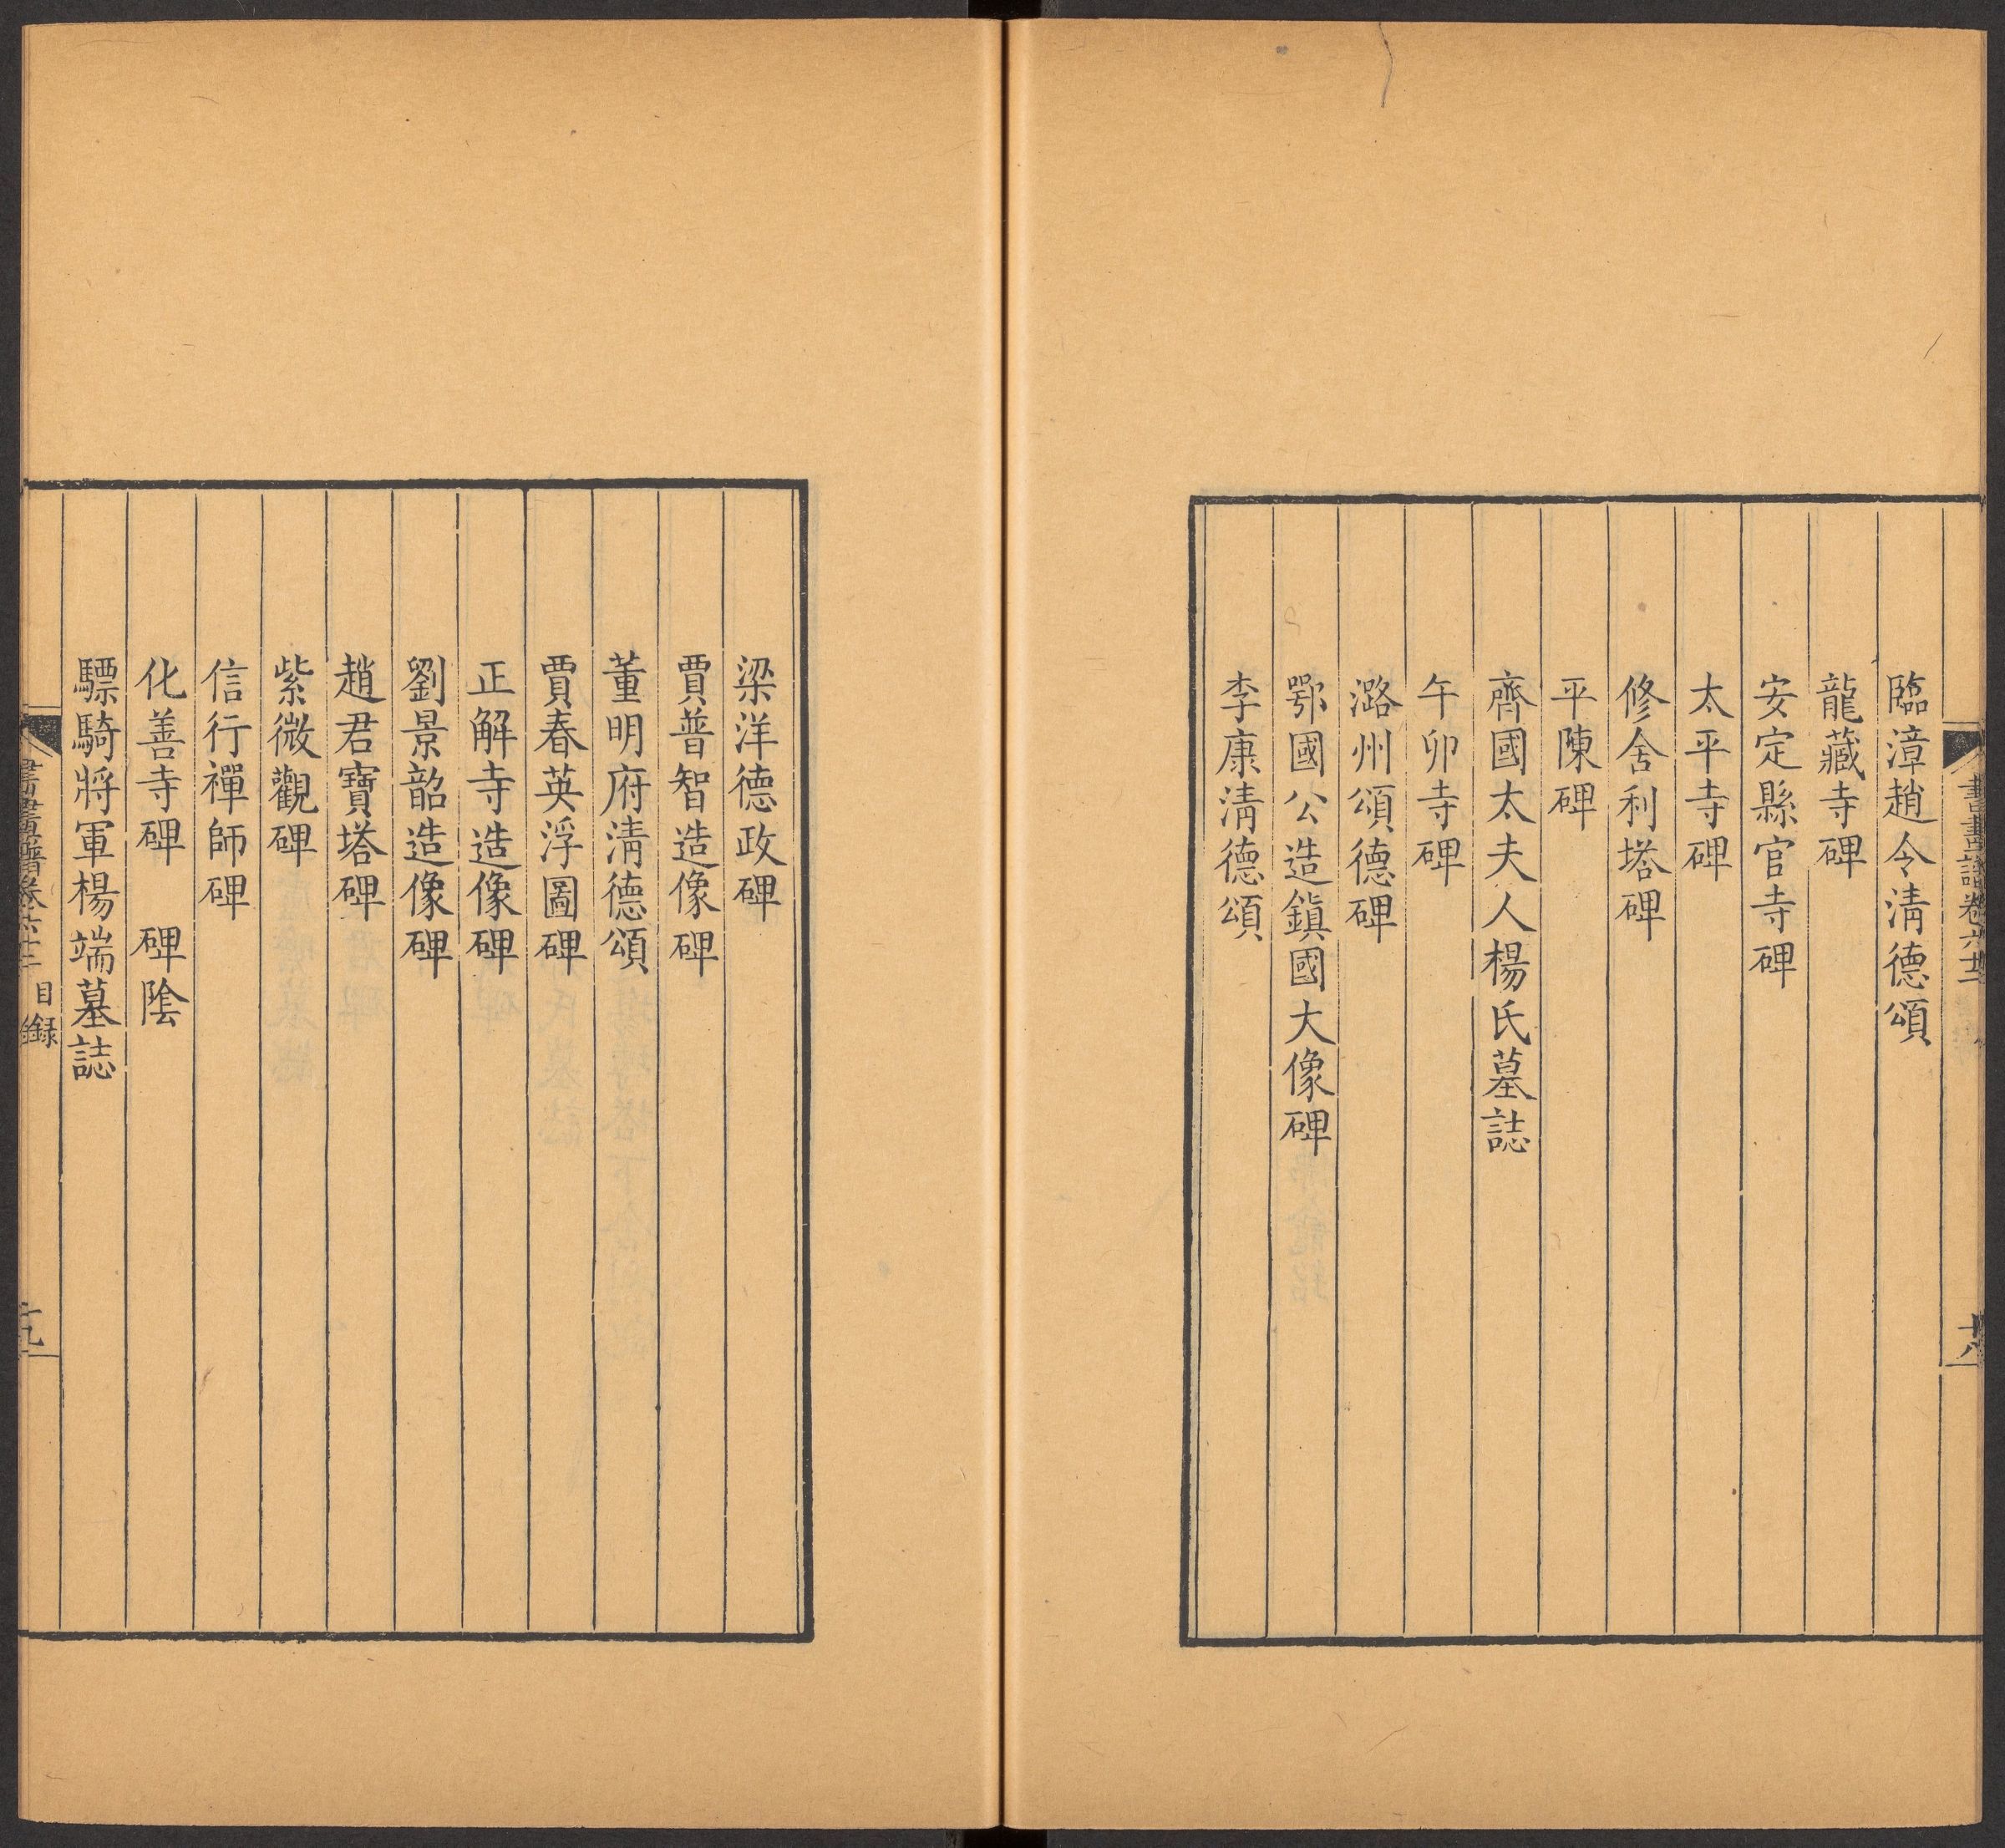 臨漳趙令淸德頌
龍藏寺碑
安定縣官寺碑
太平寺碑
修舍利塔碑
平陳碑
齊國太夫人楊氏墓誌
午卯寺碑
潞州頌德碑
鄂國公造鎭國大像碑
李康淸德頌
梁洋德政碑
賈普智造像碑
董明府淸德頌
賈春英浮圖碑
正解寺造像碑
劉景韶造像碑
趙君寶塔碑
紫微觀碑
信行禪師碑
化善寺碑　碑陰
驃騎將軍楊端墓誌
目錄